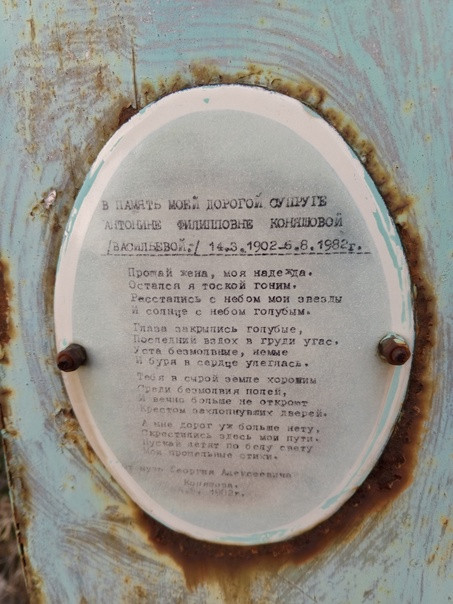 В ПАМЯТЬ МОЕЙ ДОРОГОЙ СУПРУГЕ
АНТОНИНЕ ФИЛИППОВНЕ КОНЯШОВОЙ
/ВАСИЛЬЕВОЙ./ 14.3.1902-6.8.1982г.
Прощай жена, моя надежда.
Остался я тоской гоним.
Расстались с небом мои звезды
И солнце с небом голубым.
Глаза закрылись голубые,
Последний вздох в груди угас.
Уста безмолвные, немые
И буря в сердце улеглась.
Тебя в сырой земле хороним
Среди безмолвия полей,
И вечно больше не откроют
Крестом захлопнувших дверей.
А мне дорог уж больше нету,
Скрестились здесь мои пути.
Пускай летят по белу свету
Мои прощальные стихи.
Георгия Алексеевича
1982г.